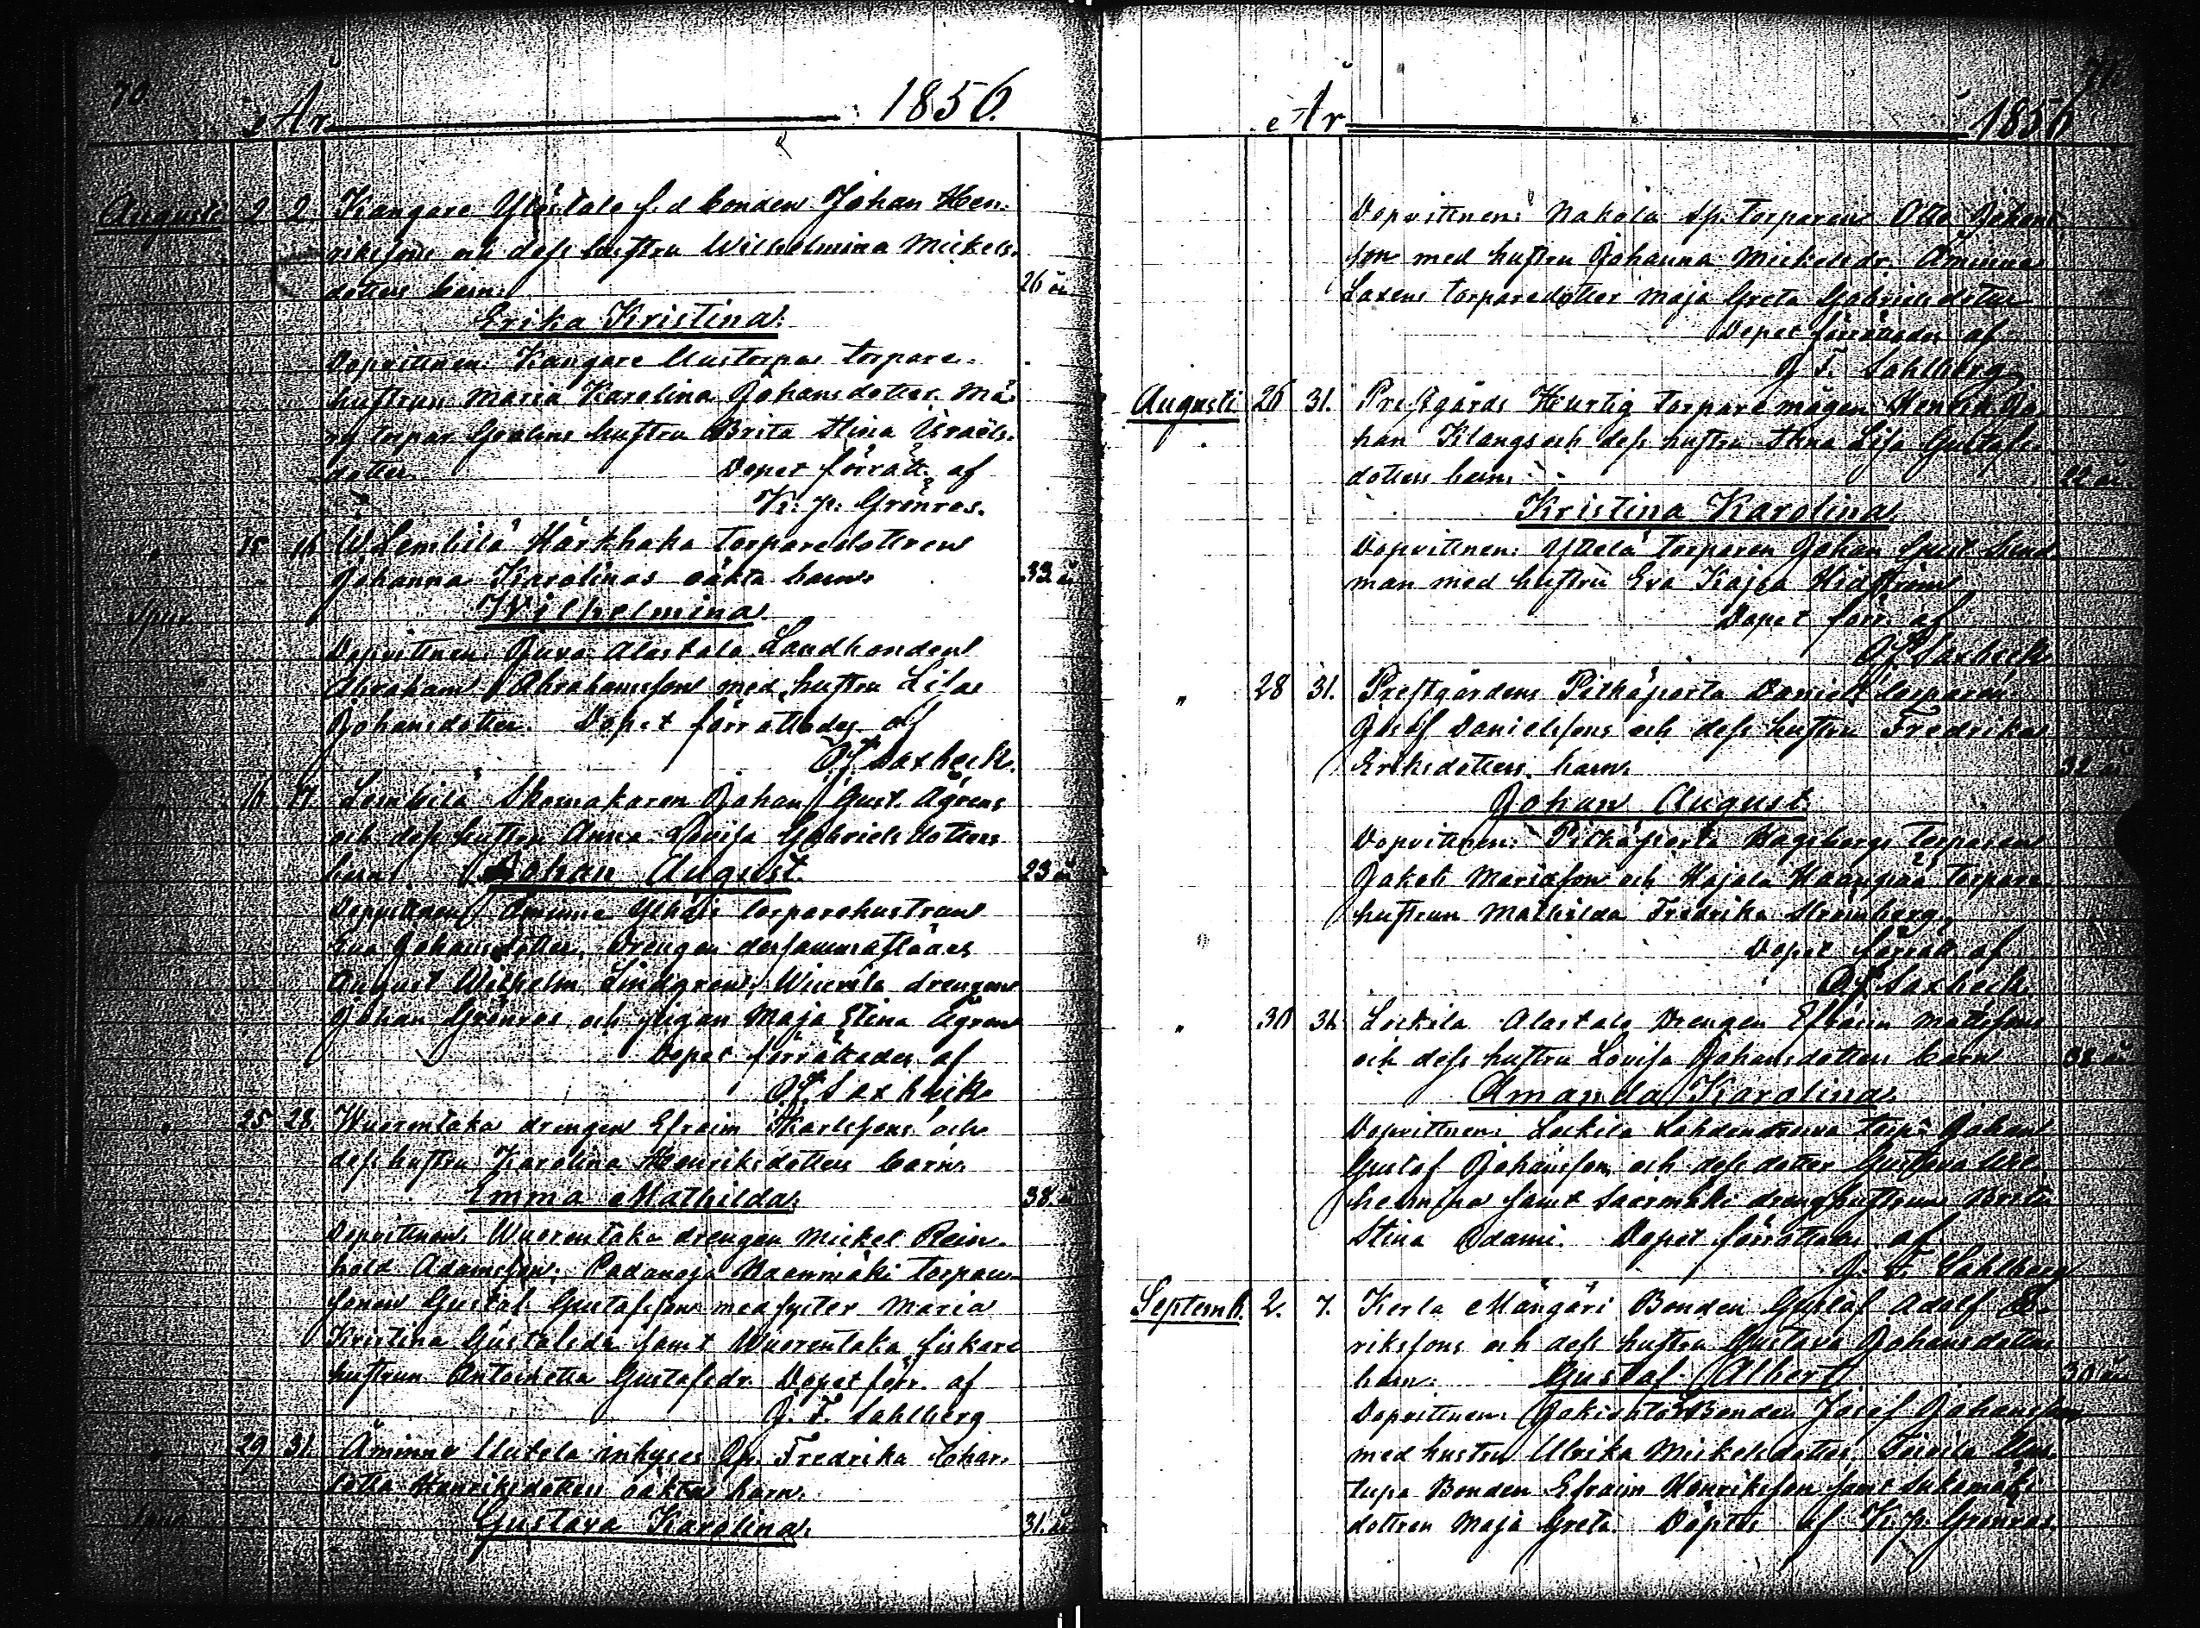 70.
År 1856.
Augusti 2 2 Kangare Yliskala f. d. bonden Johan Hen-
rikssons och dess hustru Wilhelmina Mickels-
dotters barn: 26 år
Erika Kristina.
Dopvittnen: Kangare Uustorpa torpare-
hustrun Maria Karolina Johansdotter
torpar hustru Brita Stina Israels-
dotter. Dopet förrätt. af
K. p. Grönroos.
" 15 16 Lembilä Härkhaka torparedottren
Johanna Karolinas oäkta barn 33 år
Wilhelmina.
Dopvittnen: Alastalo Landbonden
Abraham Abrahamsson med hustru Lisa
Johansdotter. Dopet förrättades af
Saxbeck.
" 16 17. Lembilä Skomakaren Johan Gust. Ågrens
och dess hustru Anna Lovisa Gabrielsdotters
barn Johan August. 23 år
Dopvittnen: torparehustrun
Eva Johansdotter, Drengen dersammastädes
August Wilhelm Lindgren, drengen
Johan Grönroos och pigan Maja Stina Ågren
Dopet förrättades af
Saxbeck
" 25 28. Wuorentaka drengen Efraim Karlssons och
dess hustru Karolina Henriksdotters barn.
Emma Mathilda. 38. år
Dopvittnen: Wuorentaka drengen Mickel Rein-
hold Adamsson; Padanoja Naanmäki torpare-
sonen Gustaf Gustafsson med syster Maria
Kristina Gustafsdr samt Wuorentaka fiskare
hustrun Antoinetta Gustafsdr. Dopet förr. af
J. F. Sahlberg
" 29 31. Åminne Uutela inhyses Qp. Fredrika Char-
lotta Henriksdotters oäkta barn.
Gustava Karolina. 31. år
71.
År 1856
Dopvittnen: Nakola Sp. torparen Otto Johans-
son med hustru Johanna Mickelsdr. Åminne
Laxens torparedotter Maja Greta Gabrielsdotter
Dopet förrättades af
J. F. Sahlberg
Augusti 26 31. Prestgårds Hurtig torparemågen Henrik Jo-
han Klangs och dess hustru Anna Lisa Gustafs-
dotters barn: 22 år
Kristina Karolina
Dopvittnen: Yttelä torparen Johan Gust. Lind-
man med hustru Eva Kajsa Hidström
Dopet förr. af
Saxbeck
" 28 31. Prestgårdens Pitkäpiorta Daniels torparen
Josef Danielssons och dess hustru Fredrika
Eriksdotters barn. 32 år
Johan August
Dopvittnen: Pitkäpiorta Hagsbergs torparen
Jakob Mariasson och Hajala Haanpää torpare
hustrun Mathilda Fredrika Strömberg,
Dopet förrätt. af
Saxbeck
" 30 31. Lockila Alastalo Drengen Efraim Matssons
och dess hustru Lovisa Johansdotters barn 38 år
Amanda Karolina
Dopvittnen: Lockila torp. Johan
Gustaf Johansson och dess dotter Gustava Wil-
helmina samt Saarmäki drenghustrun Brita
Stina Adami. Dopet förrättades af
J. F. Sahlberg
Septemb. 2. 7. Kerla Mängäri Bonden Gustaf Adolf E-
rikssons och dess hustru Gustava Johansdotters
barn: Gustaf Albert 30 år
Dopvittnen: Bonden Josef Johansson
med hustru Ulrika Mickelsdotter, Toivila Uus-
tupa Bonden Efraim Henriksson samt
dottren Maja Greta. Döptes af K. p. Grönroos.